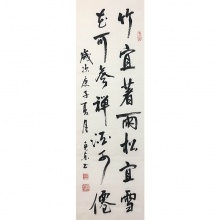 竹宜著雨松宜雪
花可參禪酒可僊
歲次庚子夏月